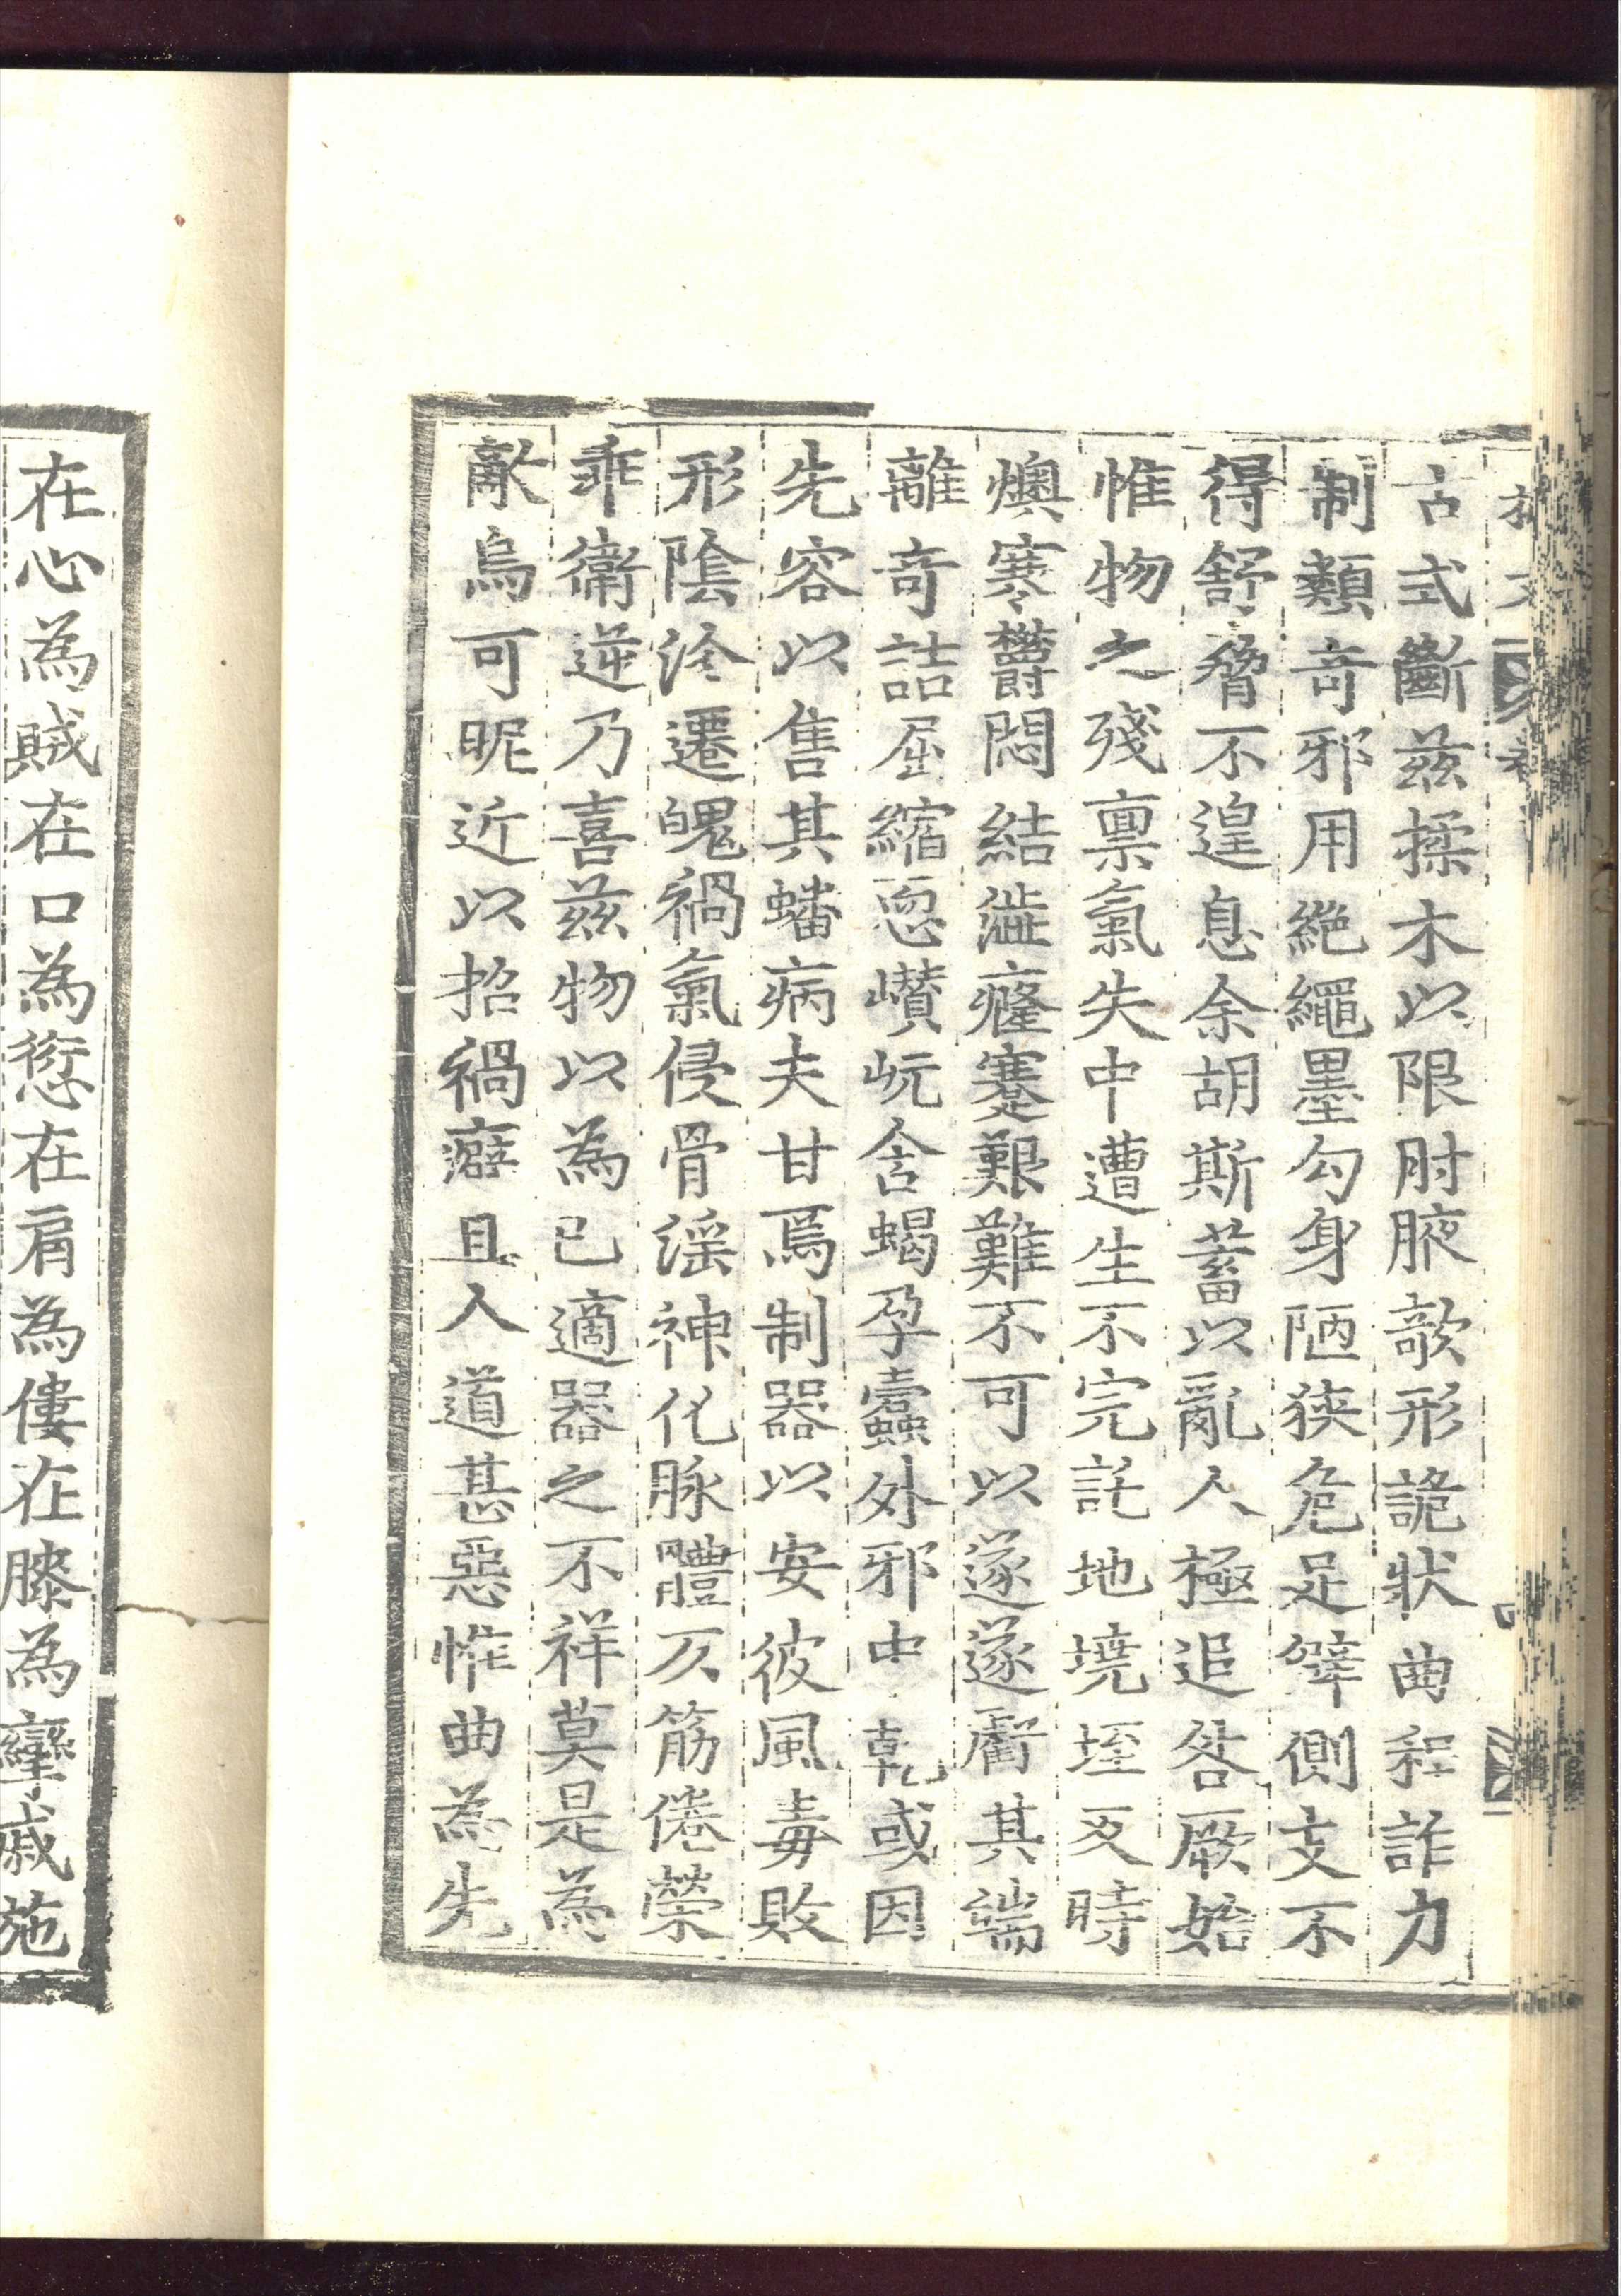 古式斷茲揉木以限肘腋欹形詭狀曲程詐力
制類奇邪用絶繩墨勾身陋狹危足僻側支不
得舒脅不遑息余胡斯蓄以亂人極追咎厥始
惟物之殘禀氣失中遭生不完託地墝垤反時
燠寒欝悶結澁癃蹇艱難不可以遂遂虧其端
離奇詰屈縮恧巑岏含蝎孕蠹外邪中乾或因
先容以售其蟠病夫甘焉制器以安彼風毒敗
形陰沴遷魄禍氣侵骨淫神化脉體仄筋倦榮
乖衛逆乃喜茲物以為已適器之不祥莫是為
敵烏可昵近以招禍癖且人道甚惡惟曲為先
在心為賊在口為愆在肩為僂在膝為攣戚施